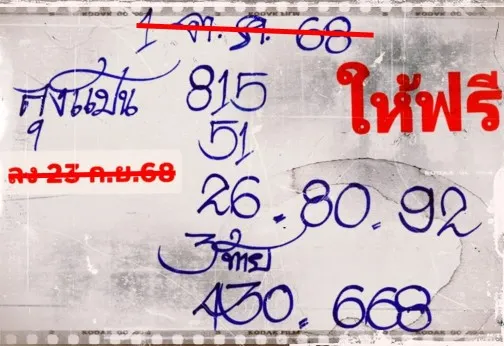 1 ต.ค. 68
ลุงแป่น 815
ให้ฟรี
51
ลง 23 ก.ย.68
26. 80. 92
3 ท้าย
430. 668
KODAK